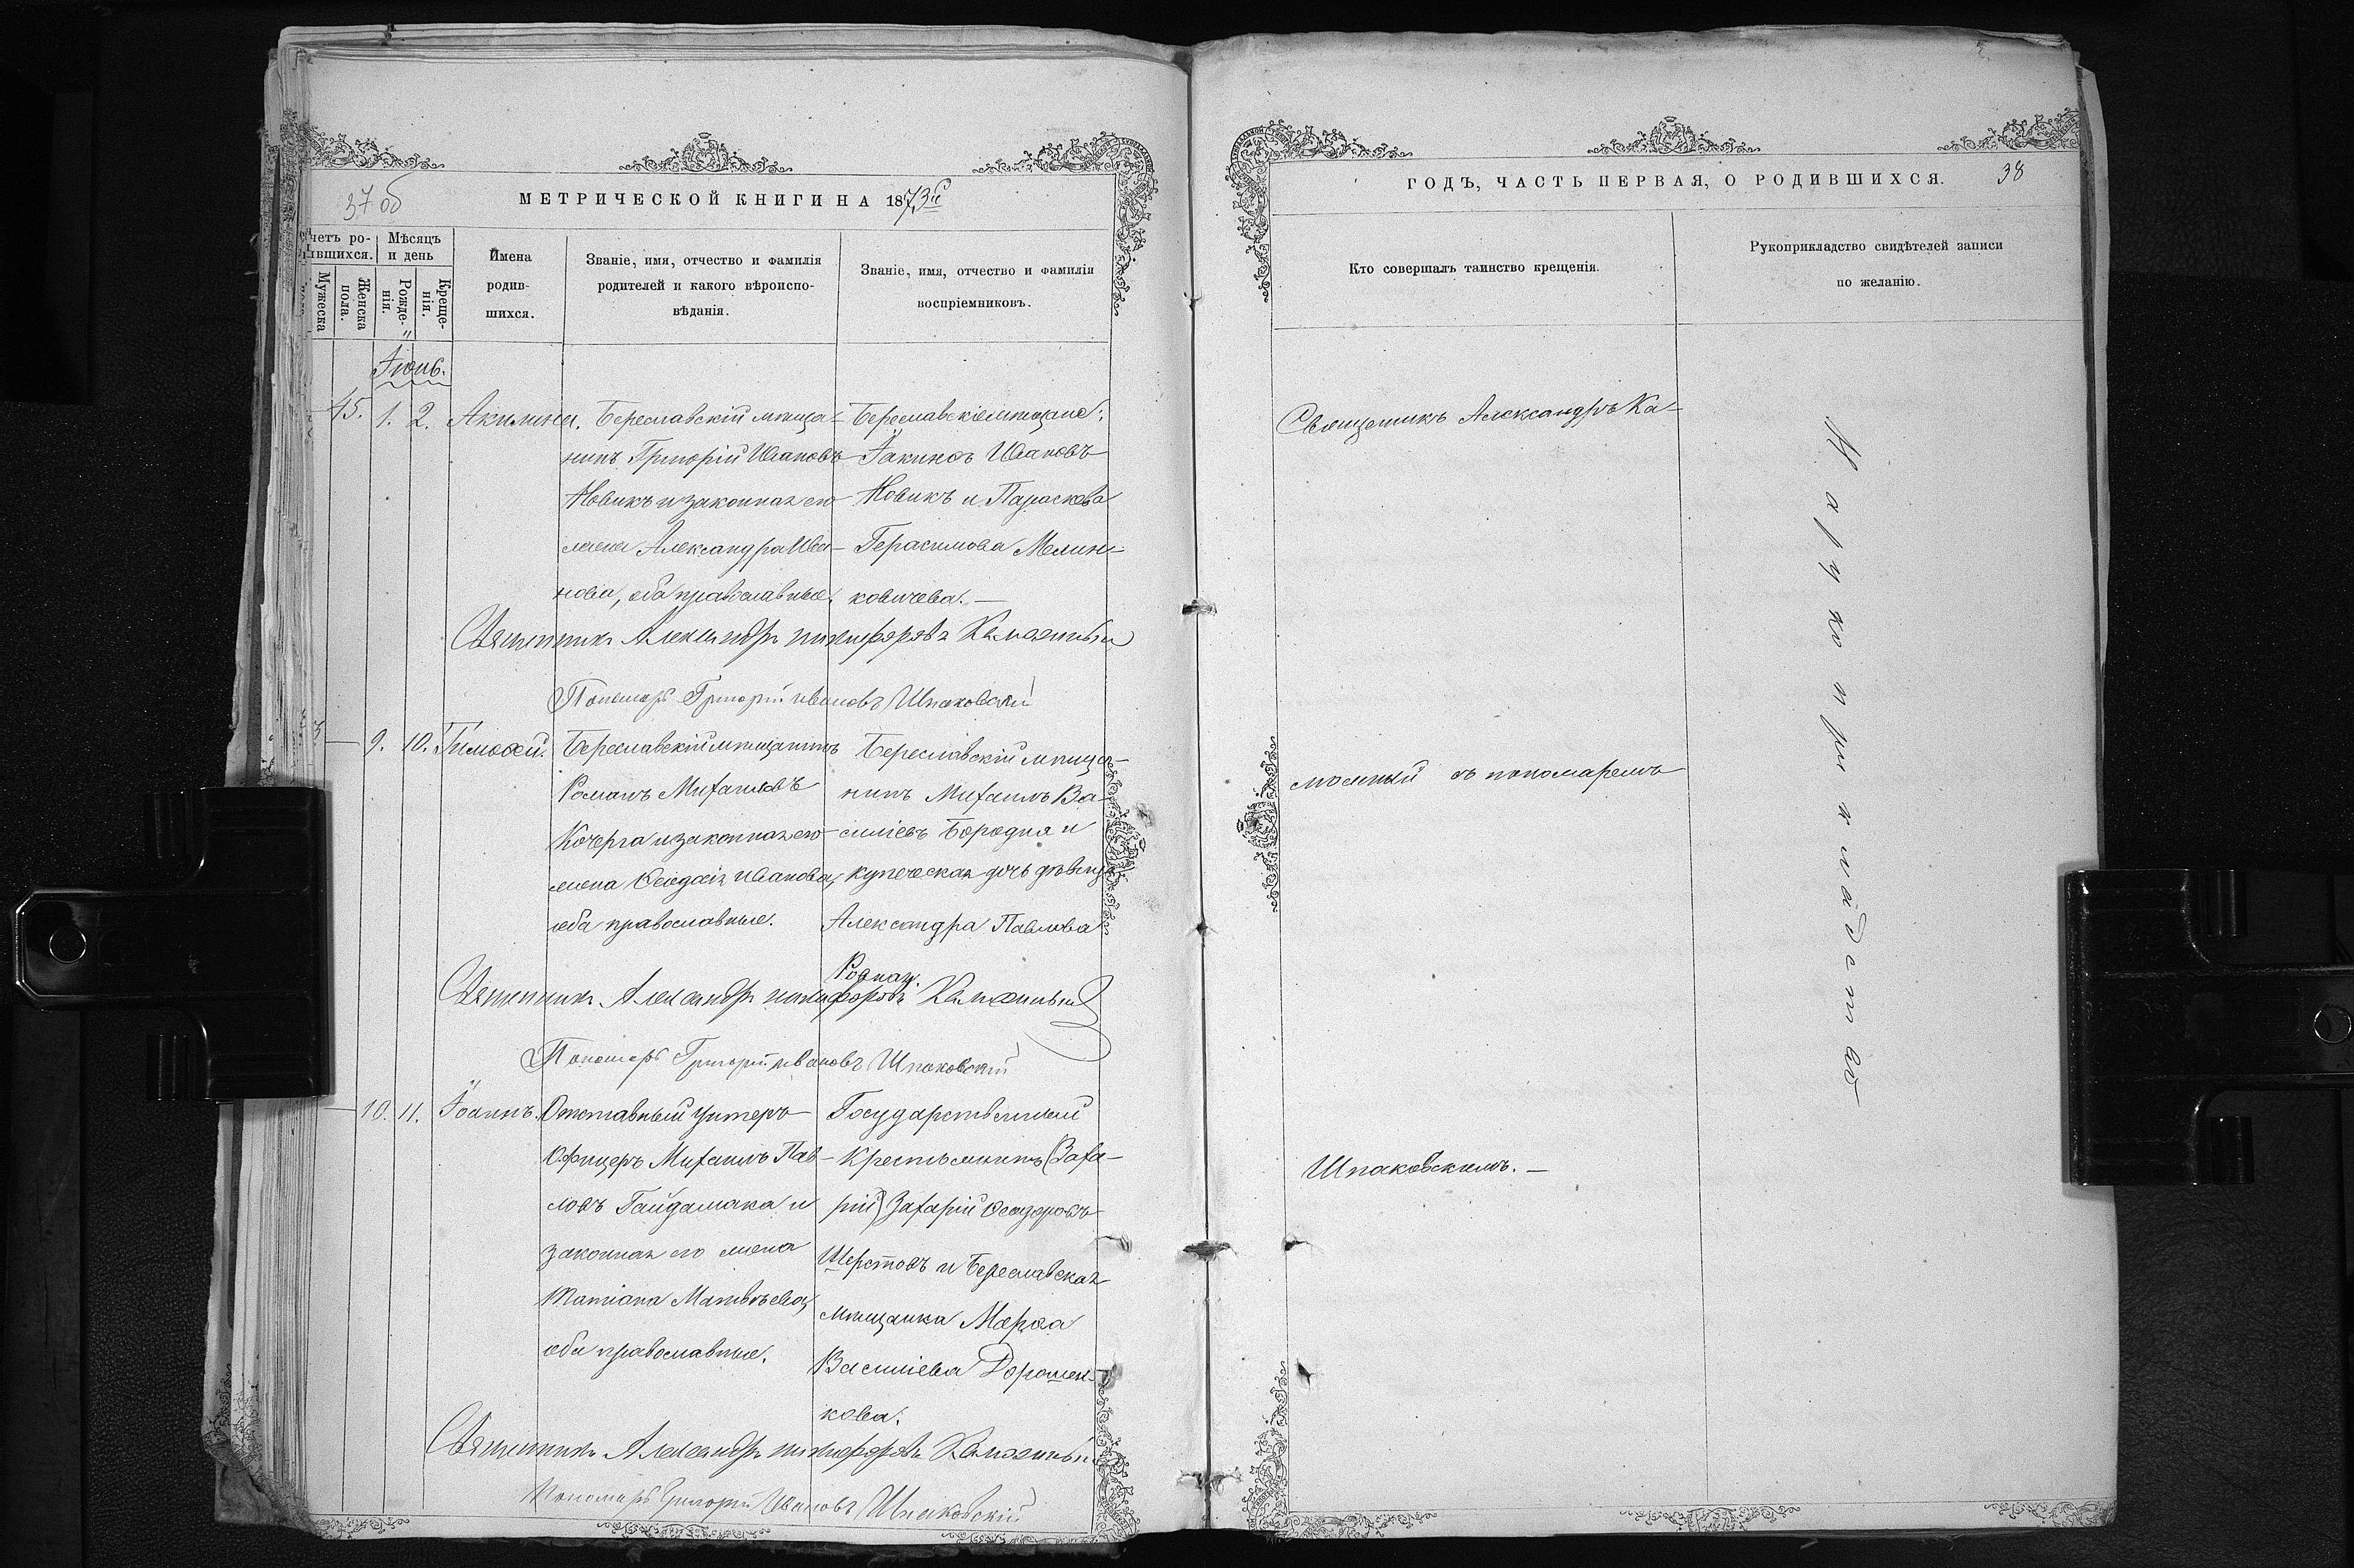 37 об
МЕТРИЧЕСКОЙ КНИГИ НА 1873й
четъ ро-
ившихся.
Мѣсяцъ
и день
Мужеска
Женска
пола.
Рожде-
нія.
Креще-
нія.
Имена
родив-
шихся.
Званіе, имя, отчество и фамилія
родителей и какого вѣроиспо-
вѣданія.
Званіе, имя, отчество и фамилія
воспріемниковъ.
Іюнь.
45. 1. 2. Акилина.
Береславскій мѣща-
нинъ Григорій Ивановъ
Новикъ и законная его
жена Александра Ива-
нова, оба православные.
Береславскіе мѣщане:
Іакимъ Ивановъ
Новикъ и Параскева
Герасимова
ковичева. —
Священникъ Александръ Никифоровъ
Пономарь Григорій Ивановъ Шпаковскій
9. 10. Тимоѳей.
Береславскій мѣщанинъ
Романъ Михаиловъ
Кочерга и законная его
жена Ѳеодосія Иванова,
оба православные.
Береславскій мѣща-
нинъ Михаилъ Ва-
силіевъ Бородня и
купеческая дочь дѣвица
Александра Павлова
Священникъ Александръ Никифоровъ
Пономарь Григорій Ивановъ Шпаковскій
10. 11. Іоаннъ.
Отставный унтеръ-
Офицеръ Михаилъ Пав-
ловъ Гайдамака и
законная его жена
Татіана Матвѣева,
оба православные.
Государственный
Крестьянинъ (Заха-
рій) Захарій Ѳеодоровъ
Шерстовъ и Береславская
мѣщанка Марѳа
Василіева Дорошен-
кова.
Священникъ Александръ Никифоровъ
Пономарь Григорій Ивановъ Шпаковскій
ГОДЪ, ЧАСТЬ ПЕРВАЯ, О РОДИВШИХСЯ.
38
Кто совершалъ таинство крещенія.
Рукоприкладство свидѣтелей записи
по желанію.
Священникъ Александръ Ка-
съ пономаремъ
Шпаковскимъ. —